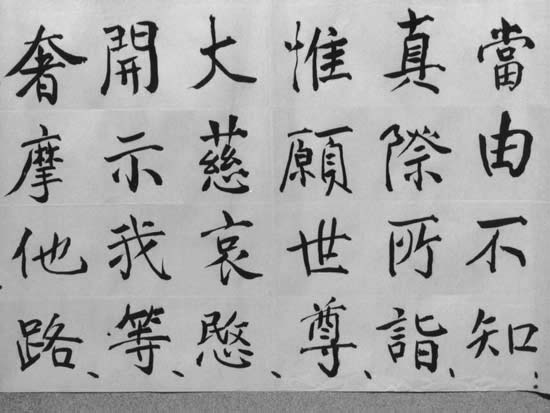 當由不知
真際所詣
惟願世尊
大慈哀愍
開示我等
奢摩他路